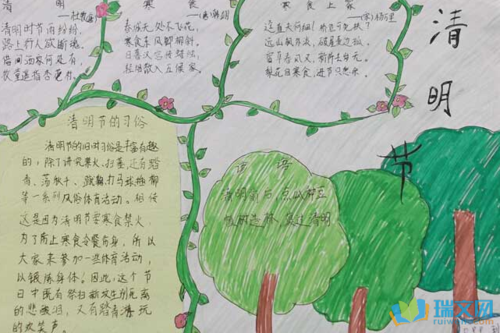 清 明
寒 食
寒食上冢
清明时节雨纷纷
路上行人欲断魂
借问酒家何处有
牧童遥指杏花村
春城无处不飞花
寒食东风御柳斜
日暮汉宫传蜡烛
轻烟散入五侯家
清
明
节
清明节的习俗
清明节的旧时习俗是丰富有趣
的,除了讲究禁火、扫墓,还有踏
青、荡秋千、蹴鞠、打马球、插柳
等一系列风俗体育活动。相传
这是因为清明节要寒食禁火,
为了防止寒食冷餐伤身,所以
大家来参加一些体育活动,
以锻炼身体。因此,这个节
日中既有祭扫新坟生别死离
的悲酸泪,又有踏青游玩
的欢笑声。
谚语
清明前后,点瓜种豆
植树造林,莫过清明
瑞文网